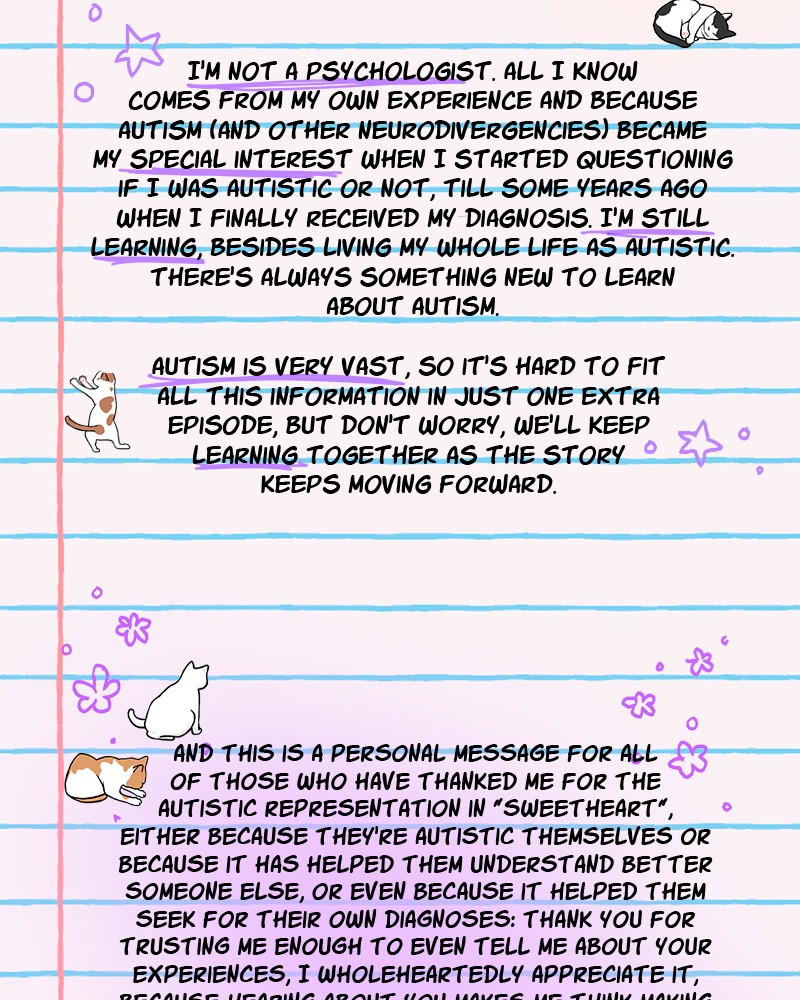 I'M NOT A PSYCHOLOGIST. ALL I KNOW
COMES FROM MY OWN EXPERIENCE AND BECAUSE
AUTISM (AND OTHER NEURODIVERGENCIES) BECAME
MY SPECIAL INTEREST WHEN I STARTED QUESTIONING
IF I WAS AUTISTIC OR NOT, TILL SOME YEARS AGO
WHEN I FINALLY RECEIVED MY DIAGNOSIS. I'M STILL
LEARNING, BESIDES LIVING MY WHOLE LIFE AS AUTISTIC.
THERE'S ALWAYS SOMETHING NEW TO LEARN
ABOUT AUTISM.
AUTISM IS VERY VAST, SO IT'S HARD TO FIT
ALL THIS INFORMATION IN JUST ONE EXTRA
EPISODE, BUT DON'T WORRY, WE'LL KEEP
LEARNING TOGETHER AS THE STORY
KEEPS MOVING FORWARD.
AND THIS IS A PERSONAL MESSAGE FOR ALL
OF THOSE WHO HAVE THANKED ME FOR THE
AUTISTIC REPRESENTATION IN "SWEETHEART",
EITHER BECAUSE THEY'RE AUTISTIC THEMSELVES OR
BECAUSE IT HAS HELPED THEM UNDERSTAND BETTER
SOMEONE ELSE, OR EVEN BECAUSE IT HELPED THEM
SEEK FOR THEIR OWN DIAGNOSES: THANK YOU FOR
TRUSTING ME ENOUGH TO EVEN TELL ME ABOUT YOUR
EXPERIENCES, I WHOLEHEARTEDLY APPRECIATE IT,
BECAUSE HEARING ABOUT YOU MAKES ME THINK MAKING